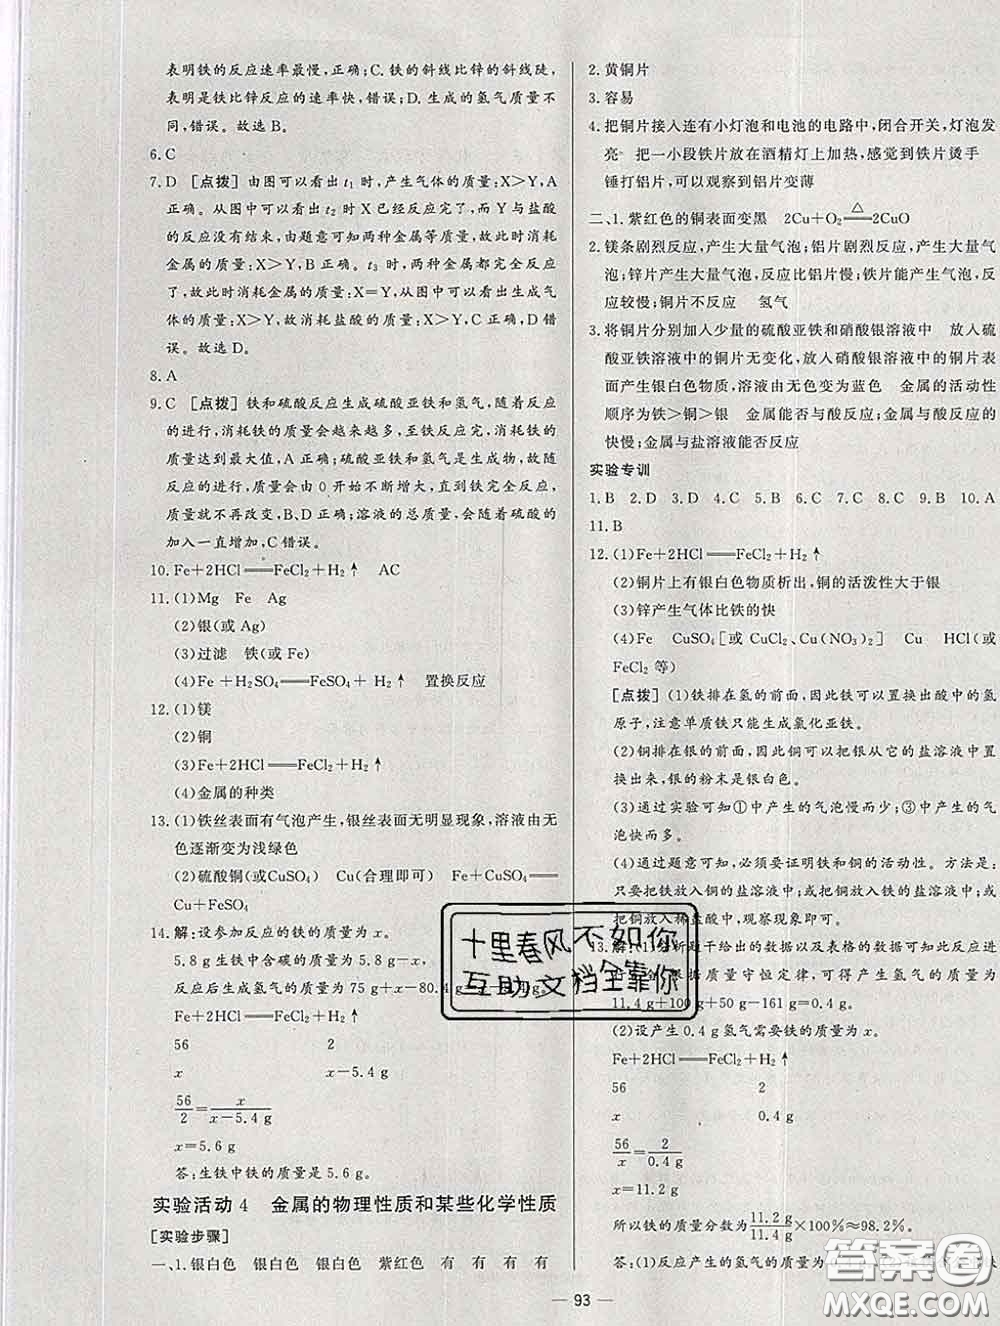 表明铁的反应速率最慢,正确;C.铁的斜线比锌的斜线陡,
表明是铁比锌反应的速率快,错误;D.生成的氢气质量不
同,错误。故选B。
6.C
7.D [点拨] 由图可以看出t1时,产生气体的质量:X>Y,A
正确。从图中可以看出t2时X已经反应完了,而Y与盐酸
的反应没有结束,由题意可知两种金属等质量,故此时消耗
金属的质量:X>Y,B正确。t3时,两种金属都完全反应
了,故此时消耗金属的质量:X=Y,从图中可以看出生成气
体的质量:X>Y,故消耗盐酸的质量:X>Y,C正确,D错
误。故选D。
8.A
9.C [点拨] 铁和硫酸反应生成硫酸亚铁和氢气,随着反应
的进行,消耗铁的质量会越来越多,至铁反应完,消耗铁的
质量达到最大值,A正确;硫酸亚铁和氢气是生成物,故随
反应的进行,质量会由0开始不断增大,直到铁完全反应,
质量就不再改变,B、D正确;溶液的总质量,会随着硫酸的
加入一直增加,C错误。
10.Fe+2HCl══FeCl2+H2↑ AC
11.(1)Mg Fe Ag
(2)银(或Ag)
(3)过滤 铁(或Fe)
(4)Fe+H2SO4══FeSO4+H2↑ 置换反应
12.(1)镁
(2)铜
(3)Fe+2HCl══FeCl2+H2↑
(4)金属的种类
13.(1)铁丝表面有气泡产生,银丝表面无明显现象,溶液由无
色逐渐变为浅绿色
(2)硫酸铜(或CuSO4) Cu(合理即可) Fe+CuSO4══
Cu+FeSO4
14.解:设参加反应的铁的质量为x。
5.8 g生铁中含碳的质量为5.8 g-x,
反应后生成氢气的质量为75 g+x-80.4 g=x-5.4 g。
Fe+2HCl══FeCl2+H2↑
56 2
x x-5.4 g
56/2=x/(x-5.4 g)
x=5.6 g
答:生铁中铁的质量是5.6 g。
实验活动4 金属的物理性质和某些化学性质
[实验步骤]
一、1.银白色 银白色 银白色 紫红色 有 有 有 有
2.黄铜片
3.容易
4.把铜片接入连有小灯泡和电池的电路中,闭合开关,灯泡发
亮 把一小段铁片放在酒精灯上加热,感觉到铁片烫手
锤打铝片,可以观察到铝片变薄
二、1.紫红色的铜表面变黑 2Cu+O2══△2CuO
2.镁条剧烈反应,产生大量气泡;铝片剧烈反应,产生大量气
泡;锌片产生大量气泡,反应比铝片慢;铁片能产生气泡,反
应较慢;铜片不反应 氢气
3.将铜片分别加入少量的硫酸亚铁和硝酸银溶液中 放入硫
酸亚铁溶液中的铜片无变化,放入硝酸银溶液中的铜片表
面产生银白色物质,溶液由无色变为蓝色 金属的活动性
顺序为铁>铜>银 金属能否与酸反应;金属与酸反应的
快慢;金属与盐溶液能否反应
实验专训
1.B 2.D 3.D 4.C 5.B 6.C 7.C 8.C 9.B 10.A
11.B
12.(1)Fe+2HCl══FeCl2+H2↑
(2)铜片上有银白色物质析出,铜的活泼性大于银
(3)锌产生气体比铁的快
(4)Fe CuSO4[或CuCl2、Cu(NO3)2] Cu HCl(或
FeCl2等)
[点拨] (1)铁排在氢的前面,因此铁可以置换出酸中的氢
原子,注意单质铁只能生成氯化亚铁。
(2)铜排在银的前面,因此铜可以把银从它的盐溶液中置
换出来,银的粉末是银白色。
(3)通过实验可知①中产生的气泡慢而少;③中产生的气
泡快而多。
(4)通过题意可知,必须要证明铁和铜的活动性。方法是:
只要把铁放入铜的盐溶液中;或把铜放入铁的盐溶液中;或
把铜放入稀盐酸中,观察现象即可。
13.解:(1)分析题干给出的数据以及表格的数据可知此反应进
根据质量守恒定律,可得产生氢气的质量为
11.4 g+100 g+50 g-161 g=0.4 g。
(2)设产生0.4 g氢气需要铁的质量为x。
Fe+2HCl══FeCl2+H2↑
56 2
x 0.4 g
56/x=2/0.4 g
x=11.2 g
所以铁的质量分数为11.2 g/11.4 g×100%≈98.2%。
答:(1)反应产生的氢气的质量为
— 93 —
十里春风不如你
互助文档全靠你
答案圈
MXQE.COM